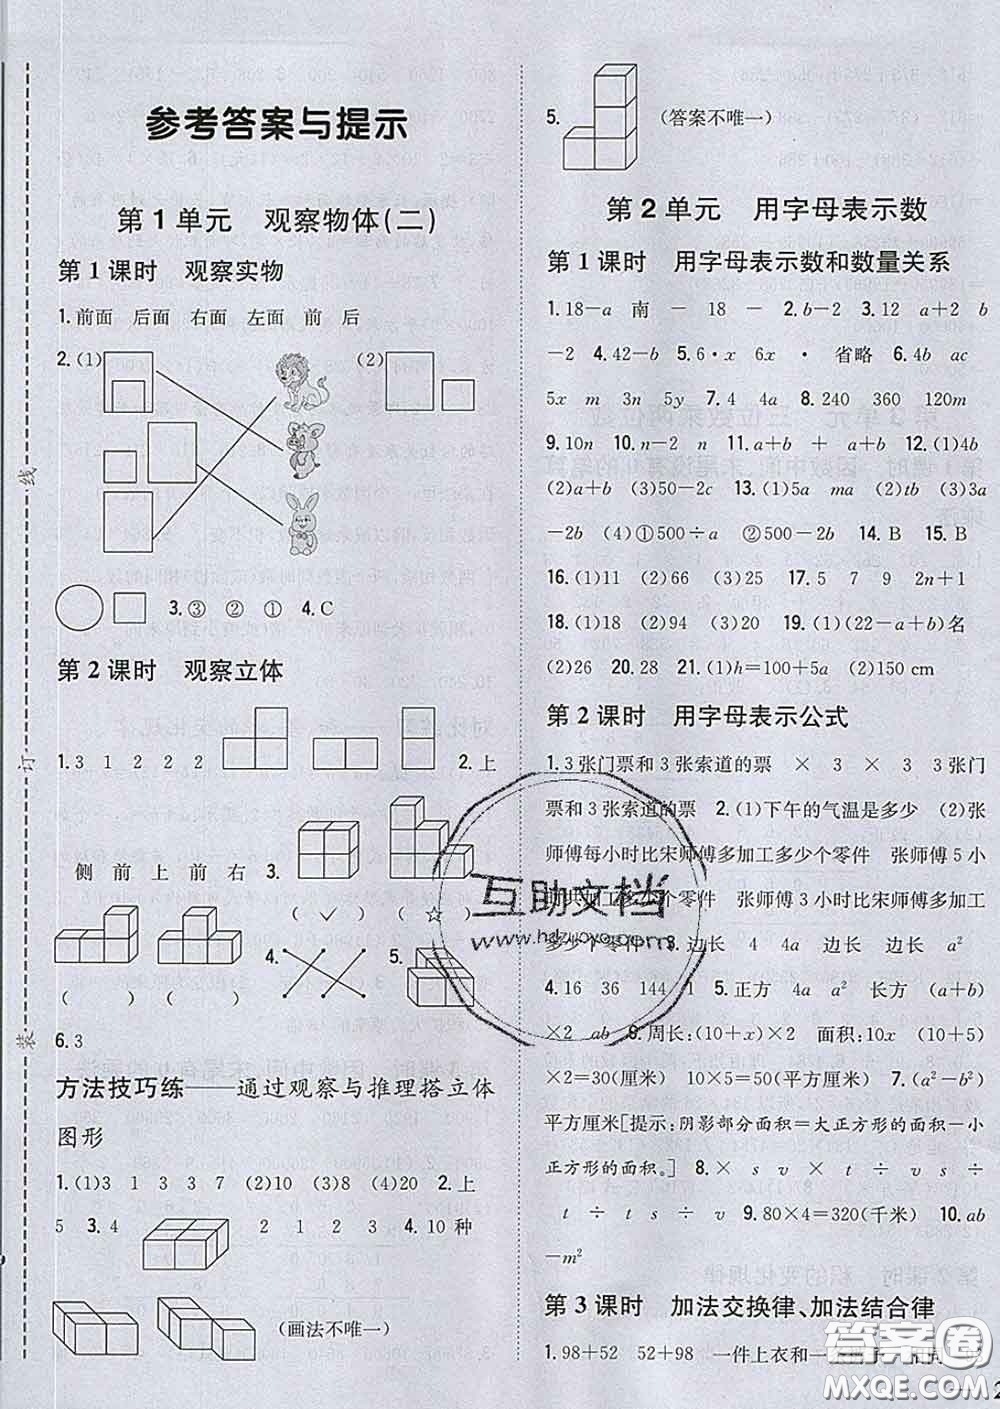 参考答案与提示
第1单元　观察物体(二)
第1课时　观察实物
1.前面　后面　右面　左面　前　后
2.(1)　(2)
3.③　②　①　4.C
第2课时　观察立体
1.3　1　2　2　2　2.上
侧　前　上　前　右　3.
(　✓　)　(　☆　)
4.　5.
(　　)　(　　)
6.3
方法技巧练——通过观察与推理搭立体
图形
1.(1)3　1　3　7　(2)10　(3)8　(4)20　2.上
5　3.4　2　1　2　3　4.10 种
(画法不唯一)
5.　(答案不唯一)
第2单元　用字母表示数
第1课时　用字母表示数和数量关系
1.18－a　南　－　18　－　2.b－2　3.12　a＋2　b
－2　4.42－b　5.6·x　6x　·　省略　6.4b　ac
5x　m　3n　5y　7.4　4a　8.240　360　120m
9.10n　10.n－2　n　11.a＋b　＋　a＋b　12.(1)4b
(2)a＋b　(3)50－2c　13.(1)5a　ma　(2)tb　(3)3a
－2b　(4)①500÷a　②500－2b　14.B　15.B
16.(1)11　(2)66　(3)25　17.5　7　9　2n＋1
18.(1)18　(2)94　(3)20　19.(1)(22－a＋b)名
(2)26　20.28　21.(1)h＝100＋5a　(2)150 cm
第2课时　用字母表示公式
1.3张门票和3张索道的票　×　3　×　3　3张门
票和3张索道的票　2.(1)下午的气温是多少　(2)张
师傅每小时比宋师傅多加工多少个零件　张师傅5小
时共加工多少个零件　张师傅3小时比宋师傅多加工
多少个零件　3.边长　4　4a　边长　边长　a²
4.16　36　144　16　5.正方　4a　a²　长方　(a＋b)
×2　ab　6.周长:(10＋x)×2　面积:10x　(10＋5)
×2＝30(厘米)　10×5＝50(平方厘米)　7.(a²－b²)
平方厘米[提示:阴影部分面积＝大正方形的面积－小
正方形的面积。]　8.×　s　v　×　t　÷　v　s　÷
t　÷　t　s　÷　v　9.80×4＝320(千米)　10.ab
－m²
第3课时　加法交换律、加法结合律
1.98＋52　52＋98　一件上衣和一
互助文档
www.hdzuoye.com
答案圈
MXQE.COM
装　订　线
2